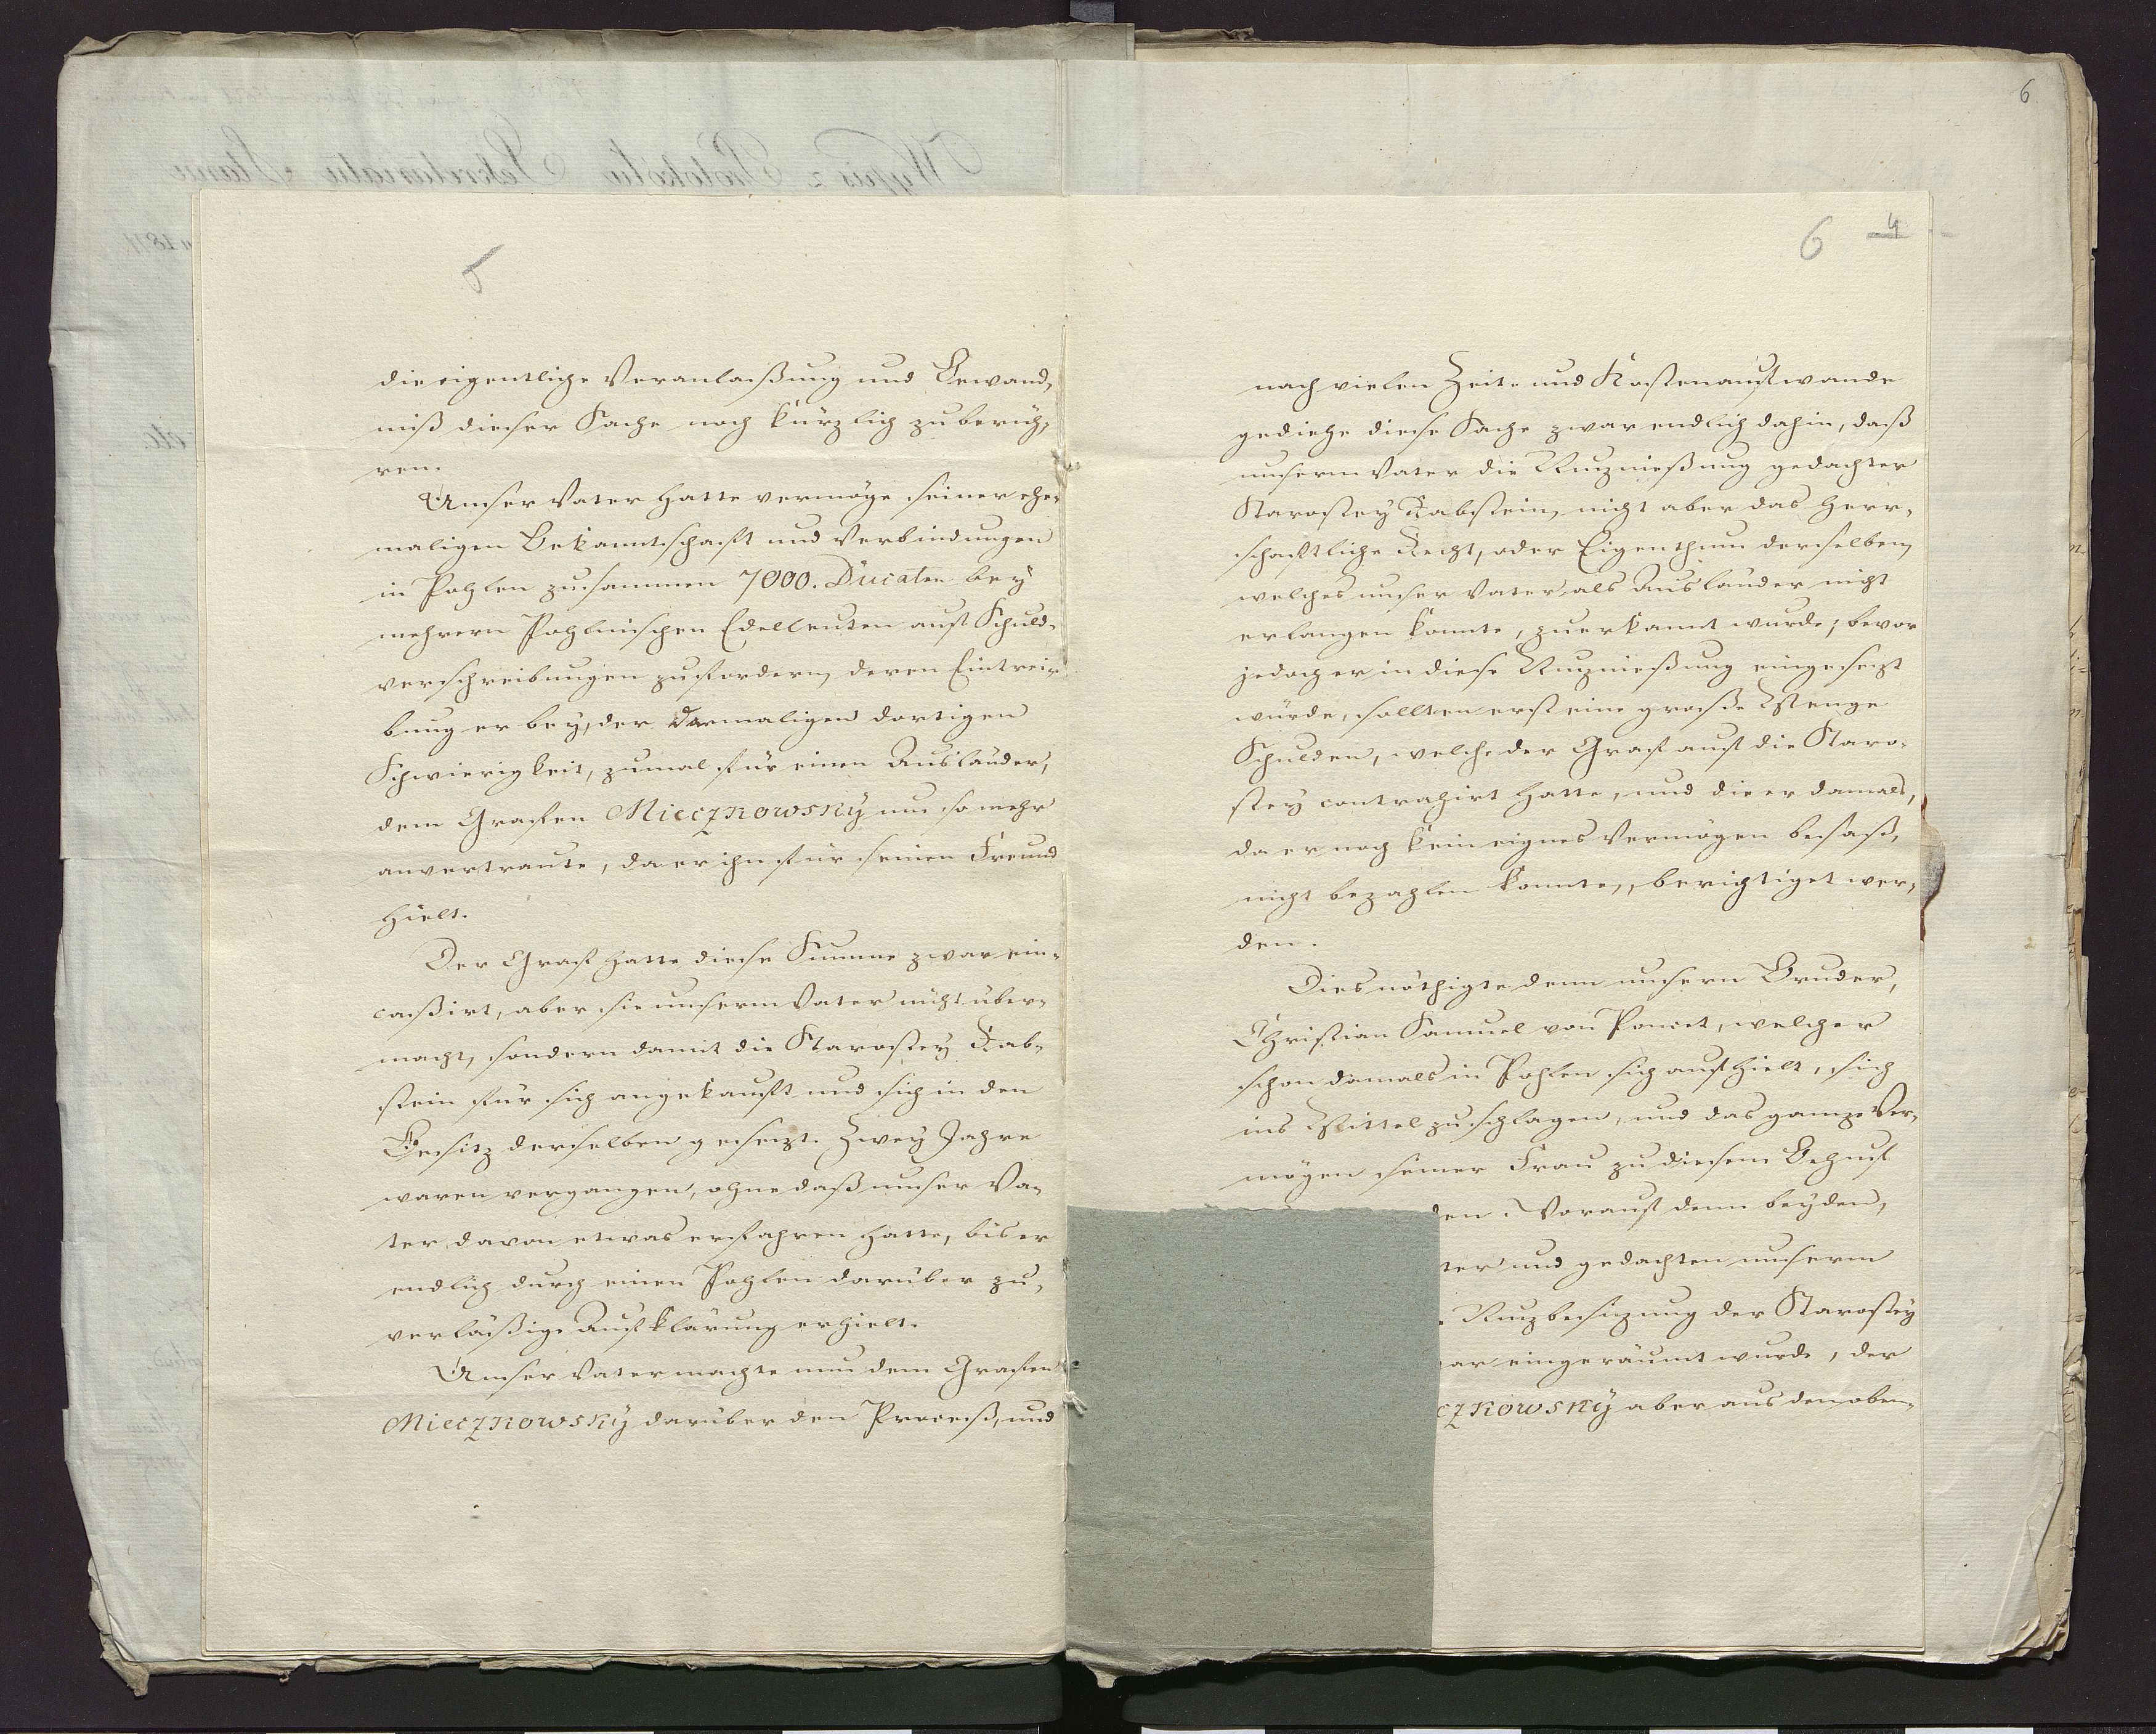 5
die eigentliche Veranlaßung und Bewand,
niß dieser Sache noch kürzlich zu berüh,
ren.
Unser Vater hatte vermöge seiner ehe,
maligen Bekanntschaft und Verbindungen
in Pohlen zusammen 7000. Ducaten bey
mehrern Pohlnischen Edelleuten auf Schuld,
verschreibungen zu fordern, deren Eintrei,
bung er bey, der dermaligen dortigen
Schwierigkeit, zumal für einen Ausländer,
dem Grafen Mieczkowsky um so mehr
anvertraute, da er ihn für seinen Freund
hielt.
Der Graf hatte diese Summe zwar ein,
caßirt, aber sie unserm Vater nicht über,
macht, sondern damit die Starostey Rab,
stein für sich angekauft und sich in den
Besitz derselben gesezt. Zwey Jahre
waren vergangen, ohne daß unser Va,
ter davon etwas erfahren hatte, bis er
endlich durch einen Pohlen darüber zu,
verläßige Aufklärung erhielt.
Unser Vater machte nun dem Grafen
Mieczkowsky darüber den Proceß, und
6
6 4
nach vielen Zeit- und Kostenaufwande
gediehe diese Sache zwar endlich dahin, daß
unserm Vater die Nuznießung gedachter
Starostey Rabstein, nicht aber das Herr,
schaftliche Recht, oder Eigenthum derselben,
welches unser Vater, als Ausländer nicht
erlangen konnte, zuerkannt wurde; bevor
jedoch er in diese Nuznießung eingesezt
würde, sollten erst eine große Menge
Schulden, welche der Graf auf die Staro,
stey contrahirt hatte, und die er damals,
da er noch kein eignes Vermögen besaß,
nicht bezahlen konnte, berichtiget wer,
den.
Dies nöthigte denn unsern Bruder,
Christian Samuel von Poncet, welcher
schon damals in Pohlen sich aufhielt, sich
ins Mittel zu schlagen, und das ganze Ver,
mögen seiner Frau zu diesem Behuf
den. Worauf denn beyden,
ter und gedachten unserm
Nuzbesizung der Starostey
ar eingeräumt wurde, der
czkowsky aber aus den oben,